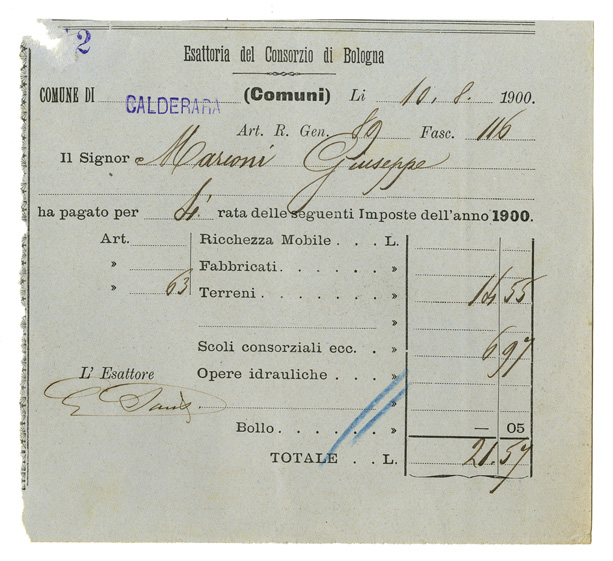 2
Esattoria del Consorzio di Bologna
COMUNE DI CALDERARA (Comuni) Li 10. 8. 1900.
Art. R. Gen. 89 Fasc. 116
Il Signor Marconi Giuseppe
ha pagato per 4ª rata delle seguenti Imposte dell'anno 1900.
Art. Ricchezza Mobile . . . L.
» Fabbricati . . . . . . . »
» 63 Terreni . . . . . . . . » 14 55
»
Scoli consorziali ecc. . » 6 97
L' Esattore Opere idrauliche . . . »
»
Bollo . . . . . . . » — 05
TOTALE . . L. 21. 57